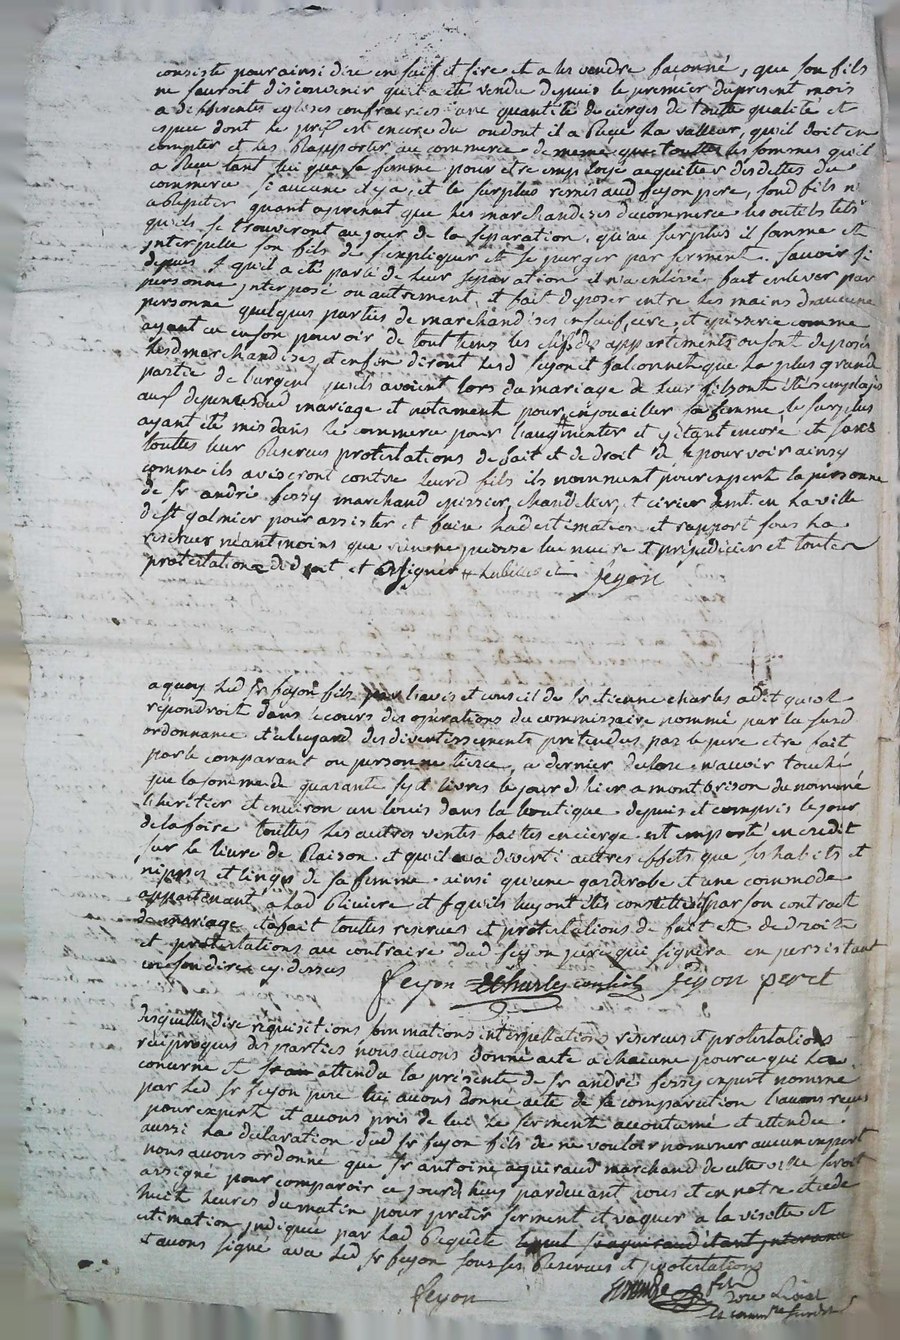 consiste pour ainsi dire en suif et sire et a les vendre façonné, que son fils
ne sauroit disconvenir qu'il a été vendu depuis le premier du present mois
a differentes eglises confrairies une quantité de cierges de toutte qualité et
espece dont le prix est encore du ou dont il a Reçu La valleur, qu'il doit en
compter et les Rapporter au commerce de meme que touttes les sommes qu'il
a Reçu tant lui que sa femme pour etre employé a aquitter les dettes du
commerce si aucune il y a, et le surplus remis aud feyon pere, sond fils n
qu'ils se trouveront au jour de la separation, qu'au surplus il somme et
interpelle son fils de s'expliquer et se purger par serment. Sauoir si
depuis qu'il a eté parlé de leur separation il n'a enlevé fait enlever par
personne interposé ou autrement, et fait deposer entre les mains d'aucune
personne quelques parties de marchandises en suif, cire, et episserie comme
ayant eu en son pouvoir de tout tems les clefs des appartements ou sont deposés
Lesd marchandises, et enfin diront Lesd feyon et falconnet que La plus grande
partie de l'argent qu'ils avoient lors du mariage de leur fils ont été employés
aux depenses dud mariage et notament pour enjouailler sa femme, le surplus
ayant été mis dans le commerce pour l'augmenter et y étant encore et sous
touttes leur Reserves protestations de fait et de droit de se pourvoir ainsy
comme ils aviseront contre leurd fils ils nomment pour expert la personne
de sr andré fessy marchand epissier, chandelier, et cirier demt. en La ville
de st galmier pour assister et faire Lad estimation et rapport sous La
reserver néantmoins que rien ne puisse lui nuire et préjudicier et touttes
protestations de droit et ont signer feyon
a quoy Led sr feyon fils par l'avis et conseil de sr etienne charles a dit qu'il
répondroit dans le cours des opérations du commissaire nommé par la susd
ordonnance et a l'egard des divertissements pretendus par le pere etre fait
par le comparant ou personne tierce, a dernier declare n'avoir touché
que la somme de quarante sept livres le jour d'hier a montbrison du nommé
Lheritier et environ un louis dans la boutique depuis et compris le jour
de la foire touttes Les autres ventes faittes en cierge ont emporté en credit
sur le livre de Raison et qu'il n'a diverti autres effets que ses habits et
nippes et linges de sa femme ainsi qu'une garderobe et une commode
appartenant a Lad Riviere et qu'ils luy ont étés constitués par son contract
de mariage, et a fait touttes reserves et protestations de fait et de droits
et protestations au contraire dud feyon pere qui signera en persistant
en son dire cy dessus
feyon Charles conseil feyon pere
desquelles dire requisitions sommations interpellations reserves et protestations
reciproques des parties nous avons donné acte a chacune pour ce qui La
concerne et attendu la présente de sr andré fessy expert nommé
par Led sr feyon pere lui avons donné acte de sa comparution l'avons reçus
pour expert et avons pris de lui Le serment accoutumé et attendu
aussi La declaration dud sr feyon fils de ne vouloir nommer aucun expert
nous avons ordonné que sr antoine aguiraud marchand de cette ville seroit
assigné pour comparoir ce jourd'huy pardevant nous et en notre etude
huit heures du matin pour preter serment et vaquer a la visitte et
estimation indiquée par Lad Requete
et avons signé avec Led sr feyon sous ses Reserves et protestations
feyon